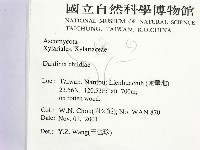 國立自然科學博物館
NATIONAL MUSEUM OF NATURAL SCIENCE
TAICHUNG, TAIWAN, R.O.CHINA
Ascomycota
Xylariales, Xylariaceae
Daldinia childiae
Loc: Taiwan, Nantou, Lienhuachih (蓮華池)
23.56N, 120.53E; alt. 700m;
on rotten wood.
Col: W.N. Chou No. WAN 870
Date: Nov. 01, 2001
Det.: Y.Z. Wang